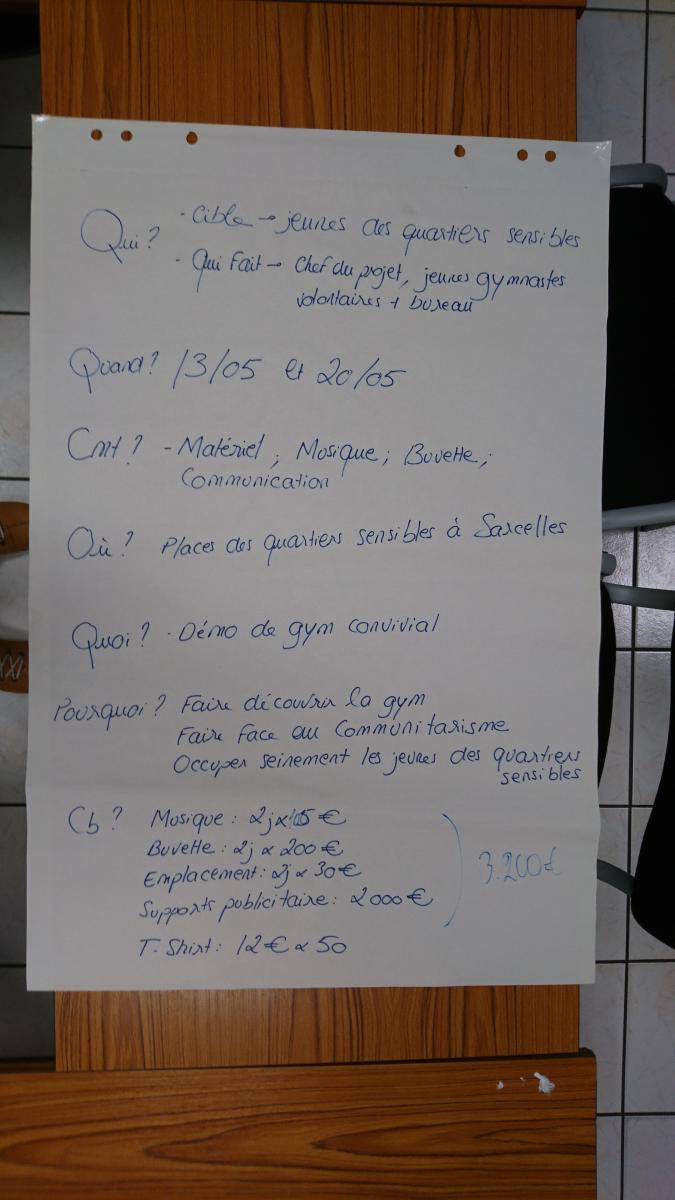 Qui ? - Cible → jeunes des quartiers sensibles
- Qui Fait → Chef du projet, jeunes gymnastes
volontaires + bureau
Quand ? 13/05 et 20/05
Cmt ? - Matériel ; Musique ; Buvette ;
Communication
Où ? Places des quartiers sensibles à Sarcelles
Quoi ? - Démo de gym convivial
Pourquoi ? Faire découvrir la gym
Faire Face au Communitarisme
Occuper seinement les jeunes des quartiers
sensibles
Cb ? Musique : 2j x €
Buvette : 2j x 200 €
Emplacement : 2j x 30 €
Supports publicitaire : 2000 €
3.200€
T. Shirt : 12 € x 50